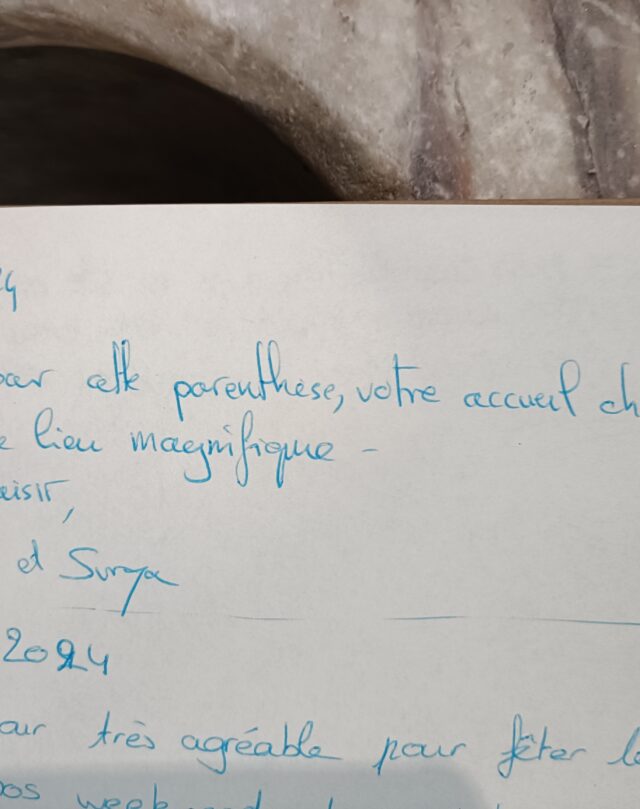 4
par cette parenthèse, votre accueil ch
e lieu magnifique -
aisir,
et Surya
2024
our très agréable pour fêter le
week end